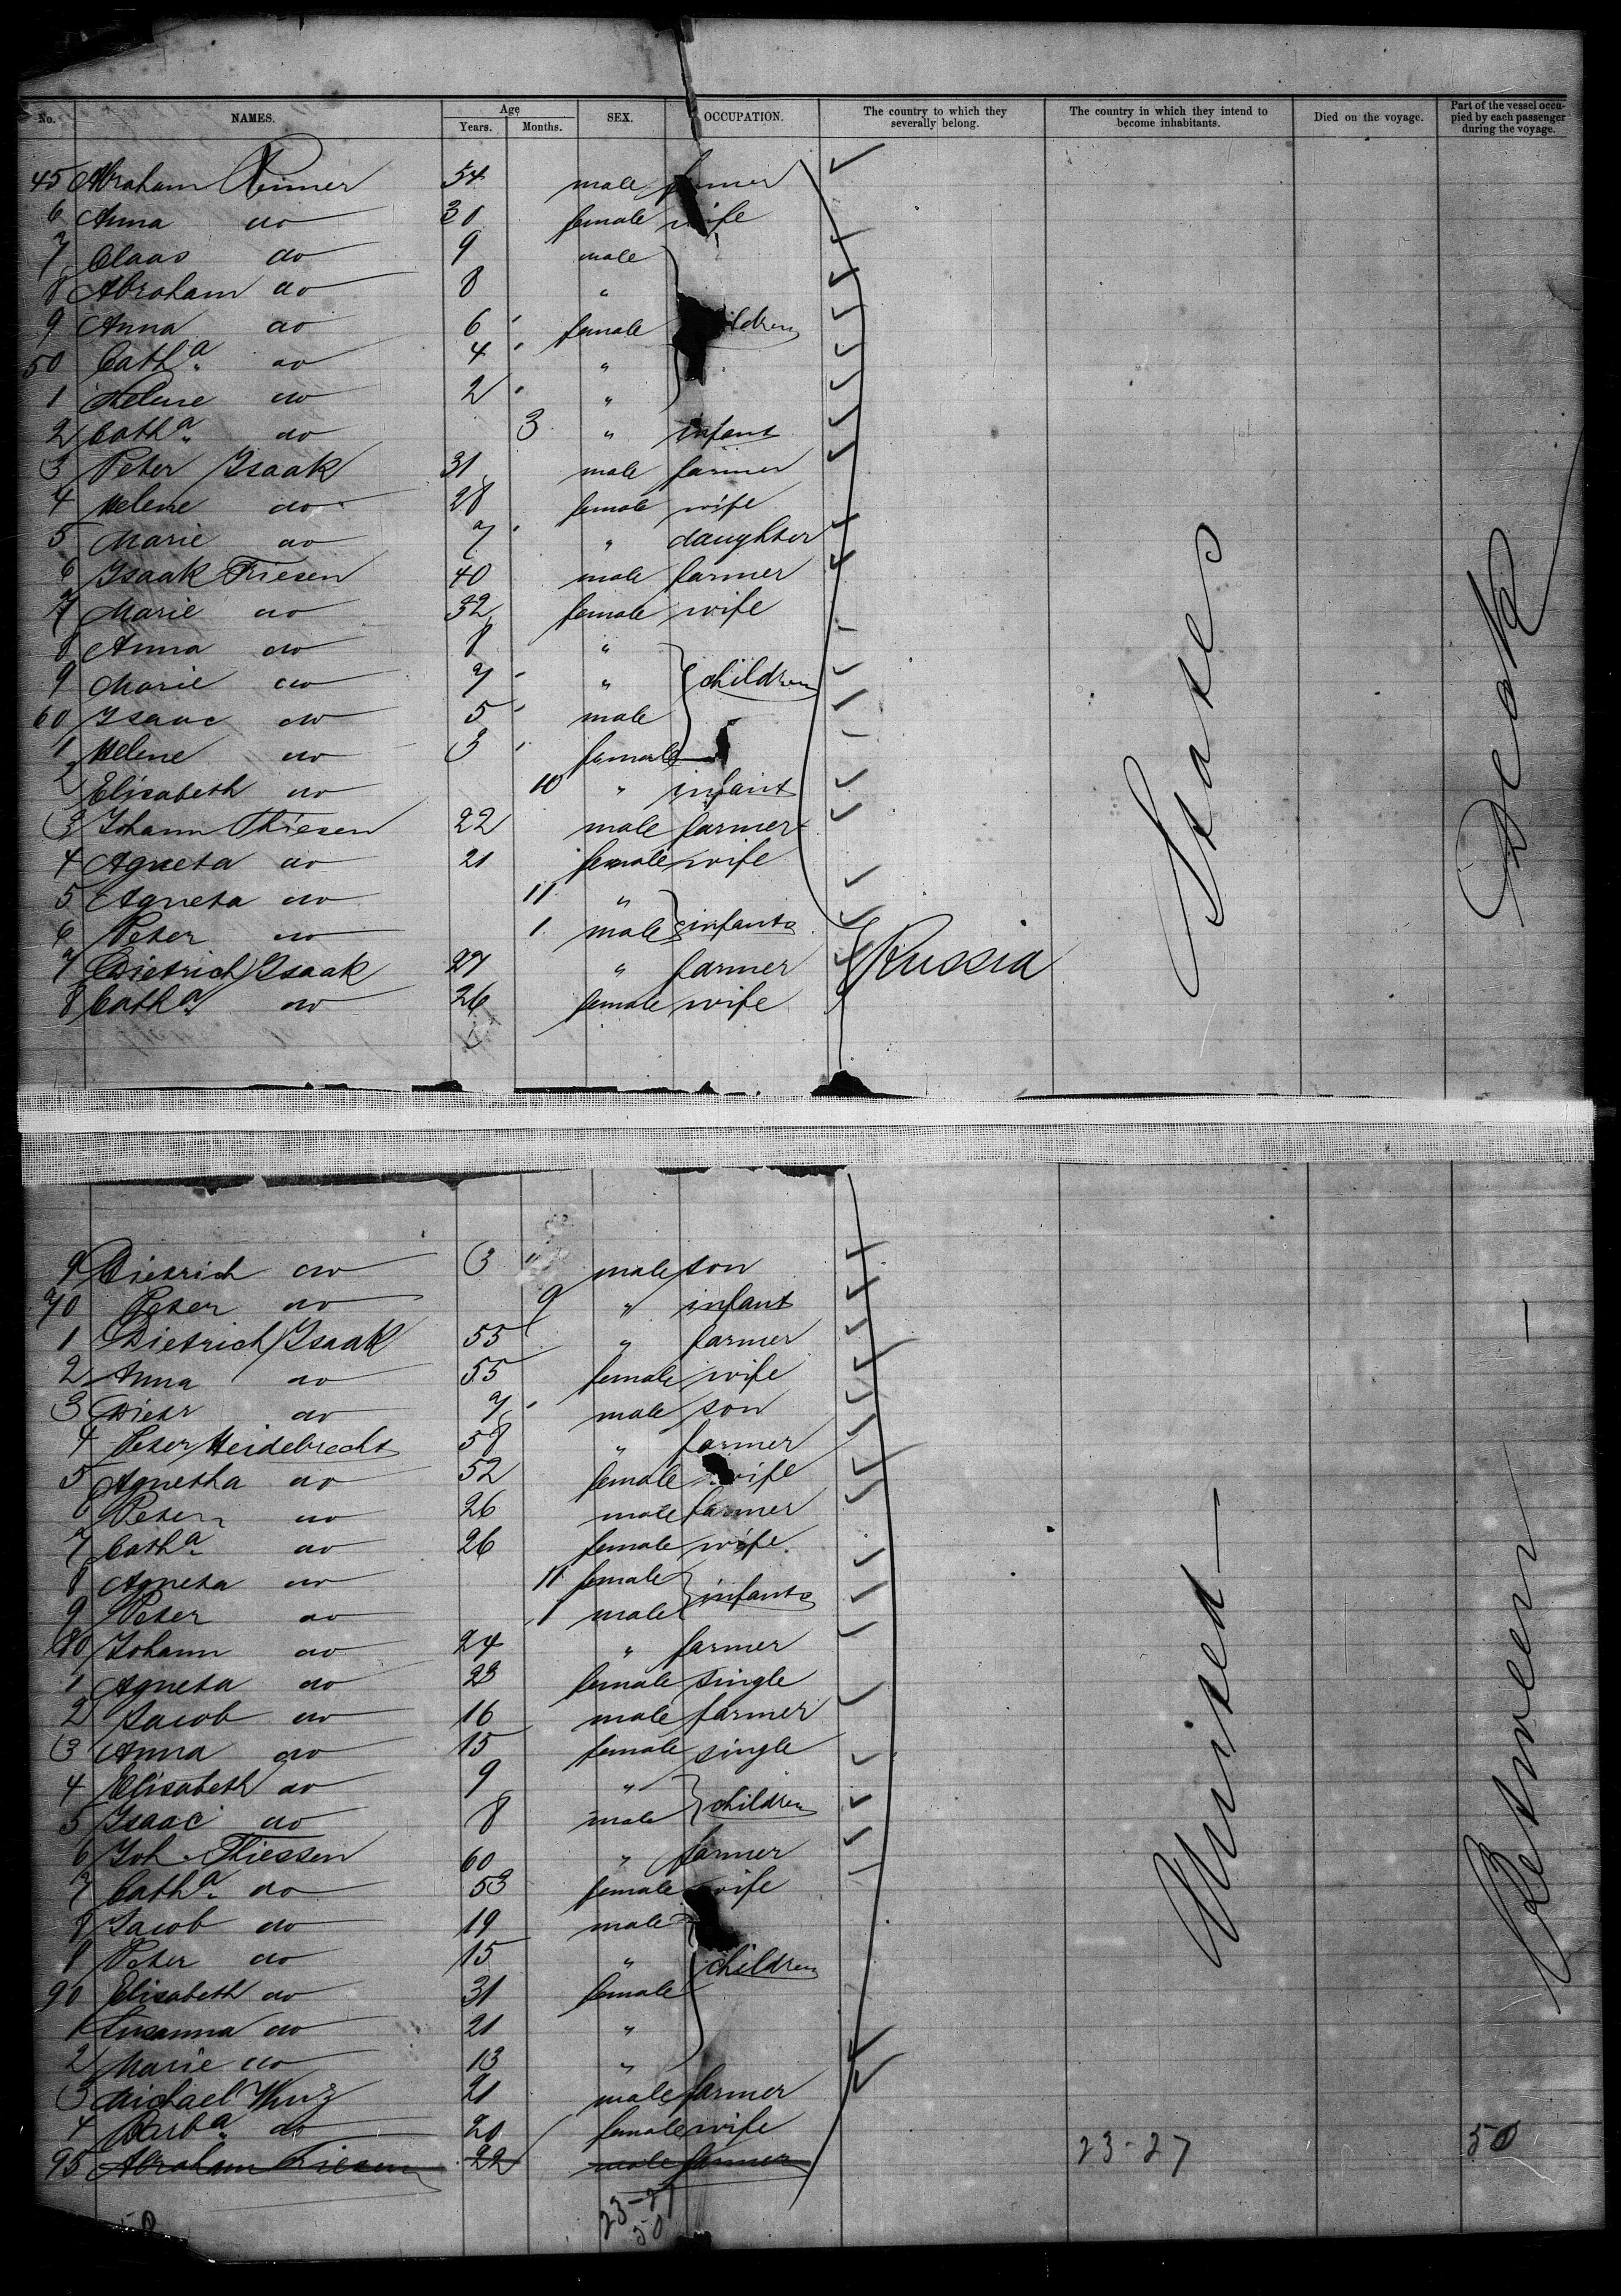 No. NAMES. Age Years. Months. SEX. OCCUPATION. The country to which they severally belong. The country in which they intend to become inhabitants. Died on the voyage. Part of the vessel occupied by each passenger during the voyage.
45 Abraham Reimer 34 male farmer
6 Anna do 30 female wife
7 Claas do 9 male
8 Abraham do 8 "
9 Anna do 6 female children
50 Cath.a do 4 "
1 Helene do 2 "
2 Cath.a do 3 " infant
3 Peter Isaak 31 male farmer
4 Helene do 28 female wife
5 Marie do 7 " daughter
6 Isaak Friesen 40 male farmer
7 Marie do 32 female wife
8 Anna do 8 "
9 Marie do 7 " children
60 Isaac do 5 male
1 Helene do 3 female
2 Elisabeth do 10 " infant
3 Johann Thiesen 22 male farmer
4 Agneta do 21 female wife
5 Agneta do 11 "
6 Peter do 1 male infants
7 Dietrich Isaak 27 " farmer Russia
8 Cath.a do 26 female wife
9 Dietrich do 3 " male son
70 Peter do 9 " infant
1 Dietrich Isaak 55 " farmer
2 Anna do 55 female wife
3 Dietr do 7 male son
4 Peter Heidebrecht 58 " farmer
5 Agnetha do 52 female wife
6 Peter do 26 male farmer
7 Cath.a do 26 female wife
8 Agneta do 11 female
9 Peter do 1 male infants
80 Johann do 24 " farmer
1 Agneta do 23 female single
2 Jacob do 16 male farmer
3 Anna do 15 female single
4 Elisabeth do 9 "
5 Isaac do 8 male children
6 Joh. Thiessen 60 " farmer
7 Cath.a do 53 female wife
8 Jacob do 19 male
8 Peter do 15 " children
90 Elisabeth do 31 female
1 Susanna do 21 "
2 Marie do 13 "
3 Michael Kurz 21 male farmer
4 Barb.a do 20 female wife
95 Abraham Friesen 22 male farmer
United States
Between Deck
23-27
50
23-27
50